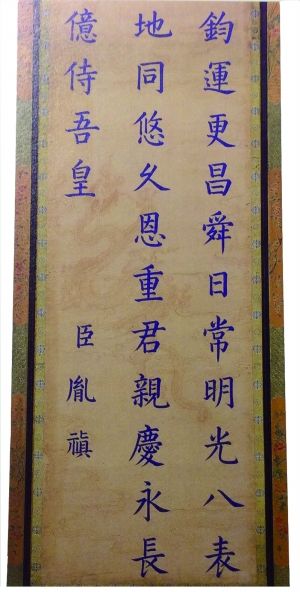 鈞運更昌舜日常明光八表
地同悠久恩重君親慶永長
億侍吾皇
臣胤禛